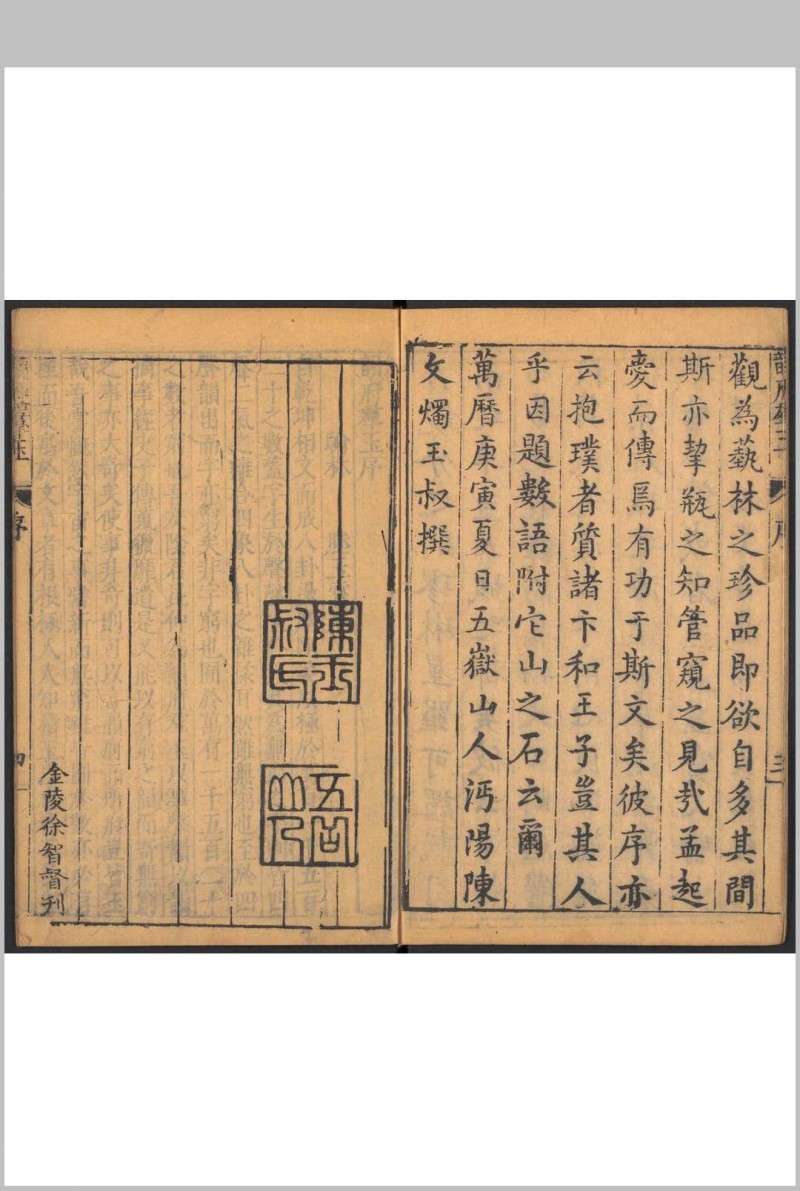 觀為藝林之珍品即欲自多其間
斯亦挈瓶之知管窺之見哉孟起
愛而傳焉有功于斯文矣彼序亦
云抱璞者質諸卞和王子豈其人
乎因題數語附它山之石云爾
萬曆庚寅夏日五嶽山人沔陽陳
文燭玉叔撰
陳玉叔氏
五岳山人
金陵徐智督刊
序
四